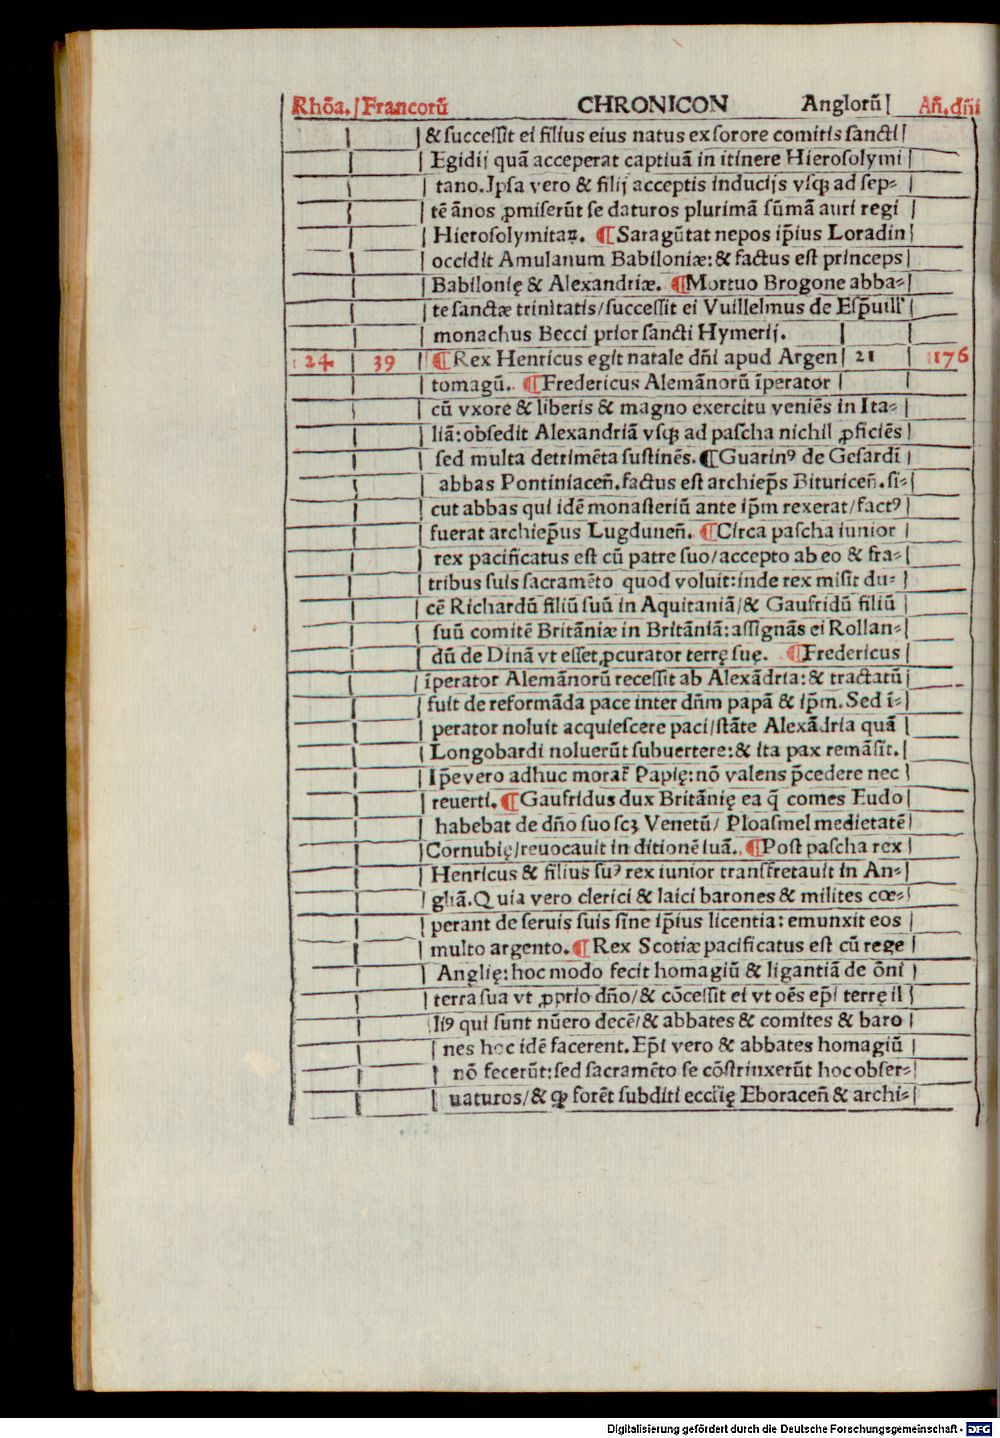 Rhōa. Francorū CHRONICON Anglorū Añ.dñi
& ſucceſſit ei filius eius natus ex ſorore comitis ſancti
Egidij quā acceperat captiuā in itinere Hieroſolymi
tano. Ipſa vero & filij acceptis inducijs vſqꝫ ad ſep⸗
tē ānos ꝓmiſerūt ſe daturos plurimā ſūmā auri regi
Hieroſolymitaꝝ. ¶Saragūtat nepos ip̄ius Loradin
occidit Amulanum Babiloniæ: & factus eſt princeps
Babilonię & Alexandriæ. ¶Mortuo Brogone abba⸗
te ſanctæ trinitatis/ſucceſſit ei Vuillelmus de Eſp̄uill'
monachus Becci prior ſancti Hymerij.
24 39 ¶Rex Henricus egit natale dn̄i apud Argen 21 1176
tomagū. ¶Fredericus Alemānorū īperator
cū vxore & liberis & magno exercitu veniēs in Ita⸗
liā: obſedit Alexandriā vſqꝫ ad paſcha nichil ꝓficiēs
ſed multa detrimēta ſuſtinēs. ¶Guarinꝰ de Geſardi
abbas Pontiniaceñ. factus eſt archiep̄s Bituriceñ. ſi⸗
cut abbas qui idē monaſteriū ante ip̄m rexerat/factꝰ
fuerat archiep̄us Lugduneñ. ¶Circa paſcha iunior
rex pacificatus eſt cū patre ſuo/accepto ab eo & fra⸗
tribus ſuis ſacramēto quod voluit: inde rex miſit du⸗
cē Richardū filiū ſuū in Aquitaniā/& Gaufridū filiū
ſuū comitē Britāniæ in Britāniā: aſſignās ei Rollan⸗
dū de Dinā vt eſſet ꝓcurator terrę ſuę. ¶Fredericus
īperator Alemānorū receſſit ab Alexādria: & tractatū
fuit de reformāda pace inter dn̄m papā & ip̄m. Sed ī⸗
perator noluit acquieſcere paci/ſtāte Alexādria quā
Longobardi noluerūt ſubuertere: & ita pax remāſit.
Ip̄e vero adhuc morat̄ Papię: nō valens p̄cedere nec
reuerti. ¶Gaufridus dux Britānię ea q̄ comes Eudo
habebat de dn̄o ſuo ſcꝫ Venetū/ Ploaſmel medietatē
Cornubię/reuocauit in ditionē ſuā. ¶Poſt paſcha rex
Henricus & filius ſuꝰ rex iunior transfretauit in An⸗
gliā. Quia vero clerici & laici barones & milites cœ⸗
perant de ſeruis ſuis ſine ip̄ius licentia: emunxit eos
multo argento. ¶Rex Scotiæ pacificatus eſt cū rege
Anglię: hoc modo fecit homagiū & ligantiā de ōni
terra ſua vt ꝓprio dn̄o/& cōceſſit ei vt oēs ep̄i terrę il
liꝰ qui ſunt nūero decē/& abbates & comites & baro
nes hoc idē facerent. Ep̄i vero & abbates homagiū
nō fecerūt: ſed ſacramēto ſe cōſtrinxerūt hoc obſer⸗
uaturos/& ꝙ forēt ſubditi eccl̄ię Eboraceñ & archi⸗
Digitalisierung gefördert durch die Deutsche Forschungsgemeinschaft - DFG